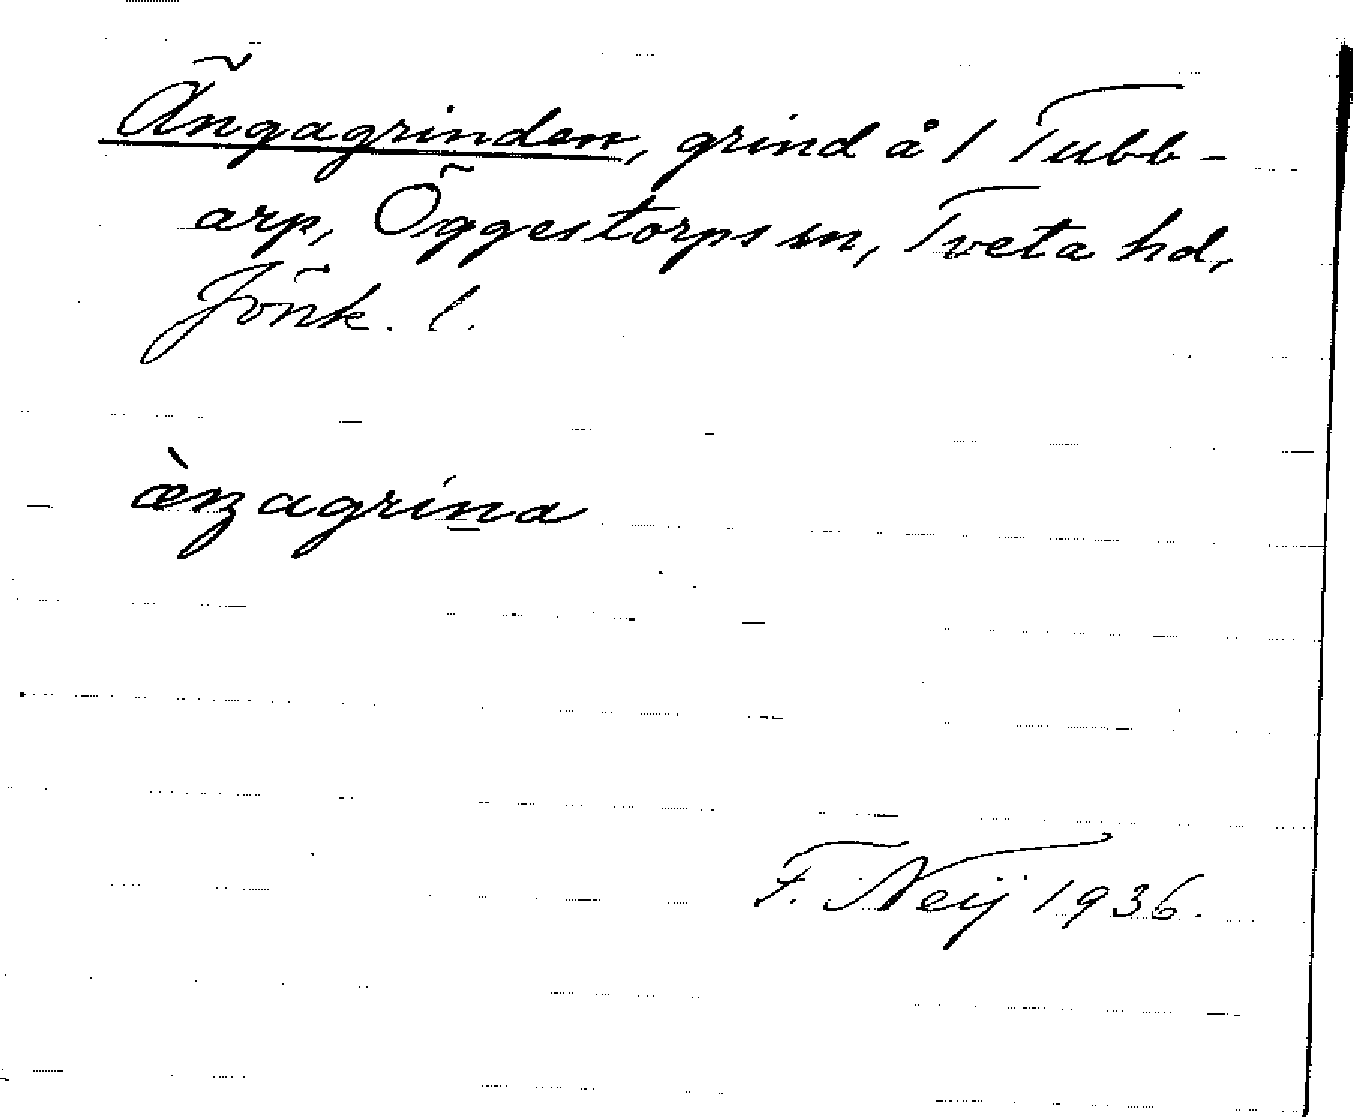 Ängagrinden, grind å 1 Tubb-
arp, Öggestorps sn, Tveta hd,
Jönk. l.
æ̀nʒagrina
F. Neij 1936.